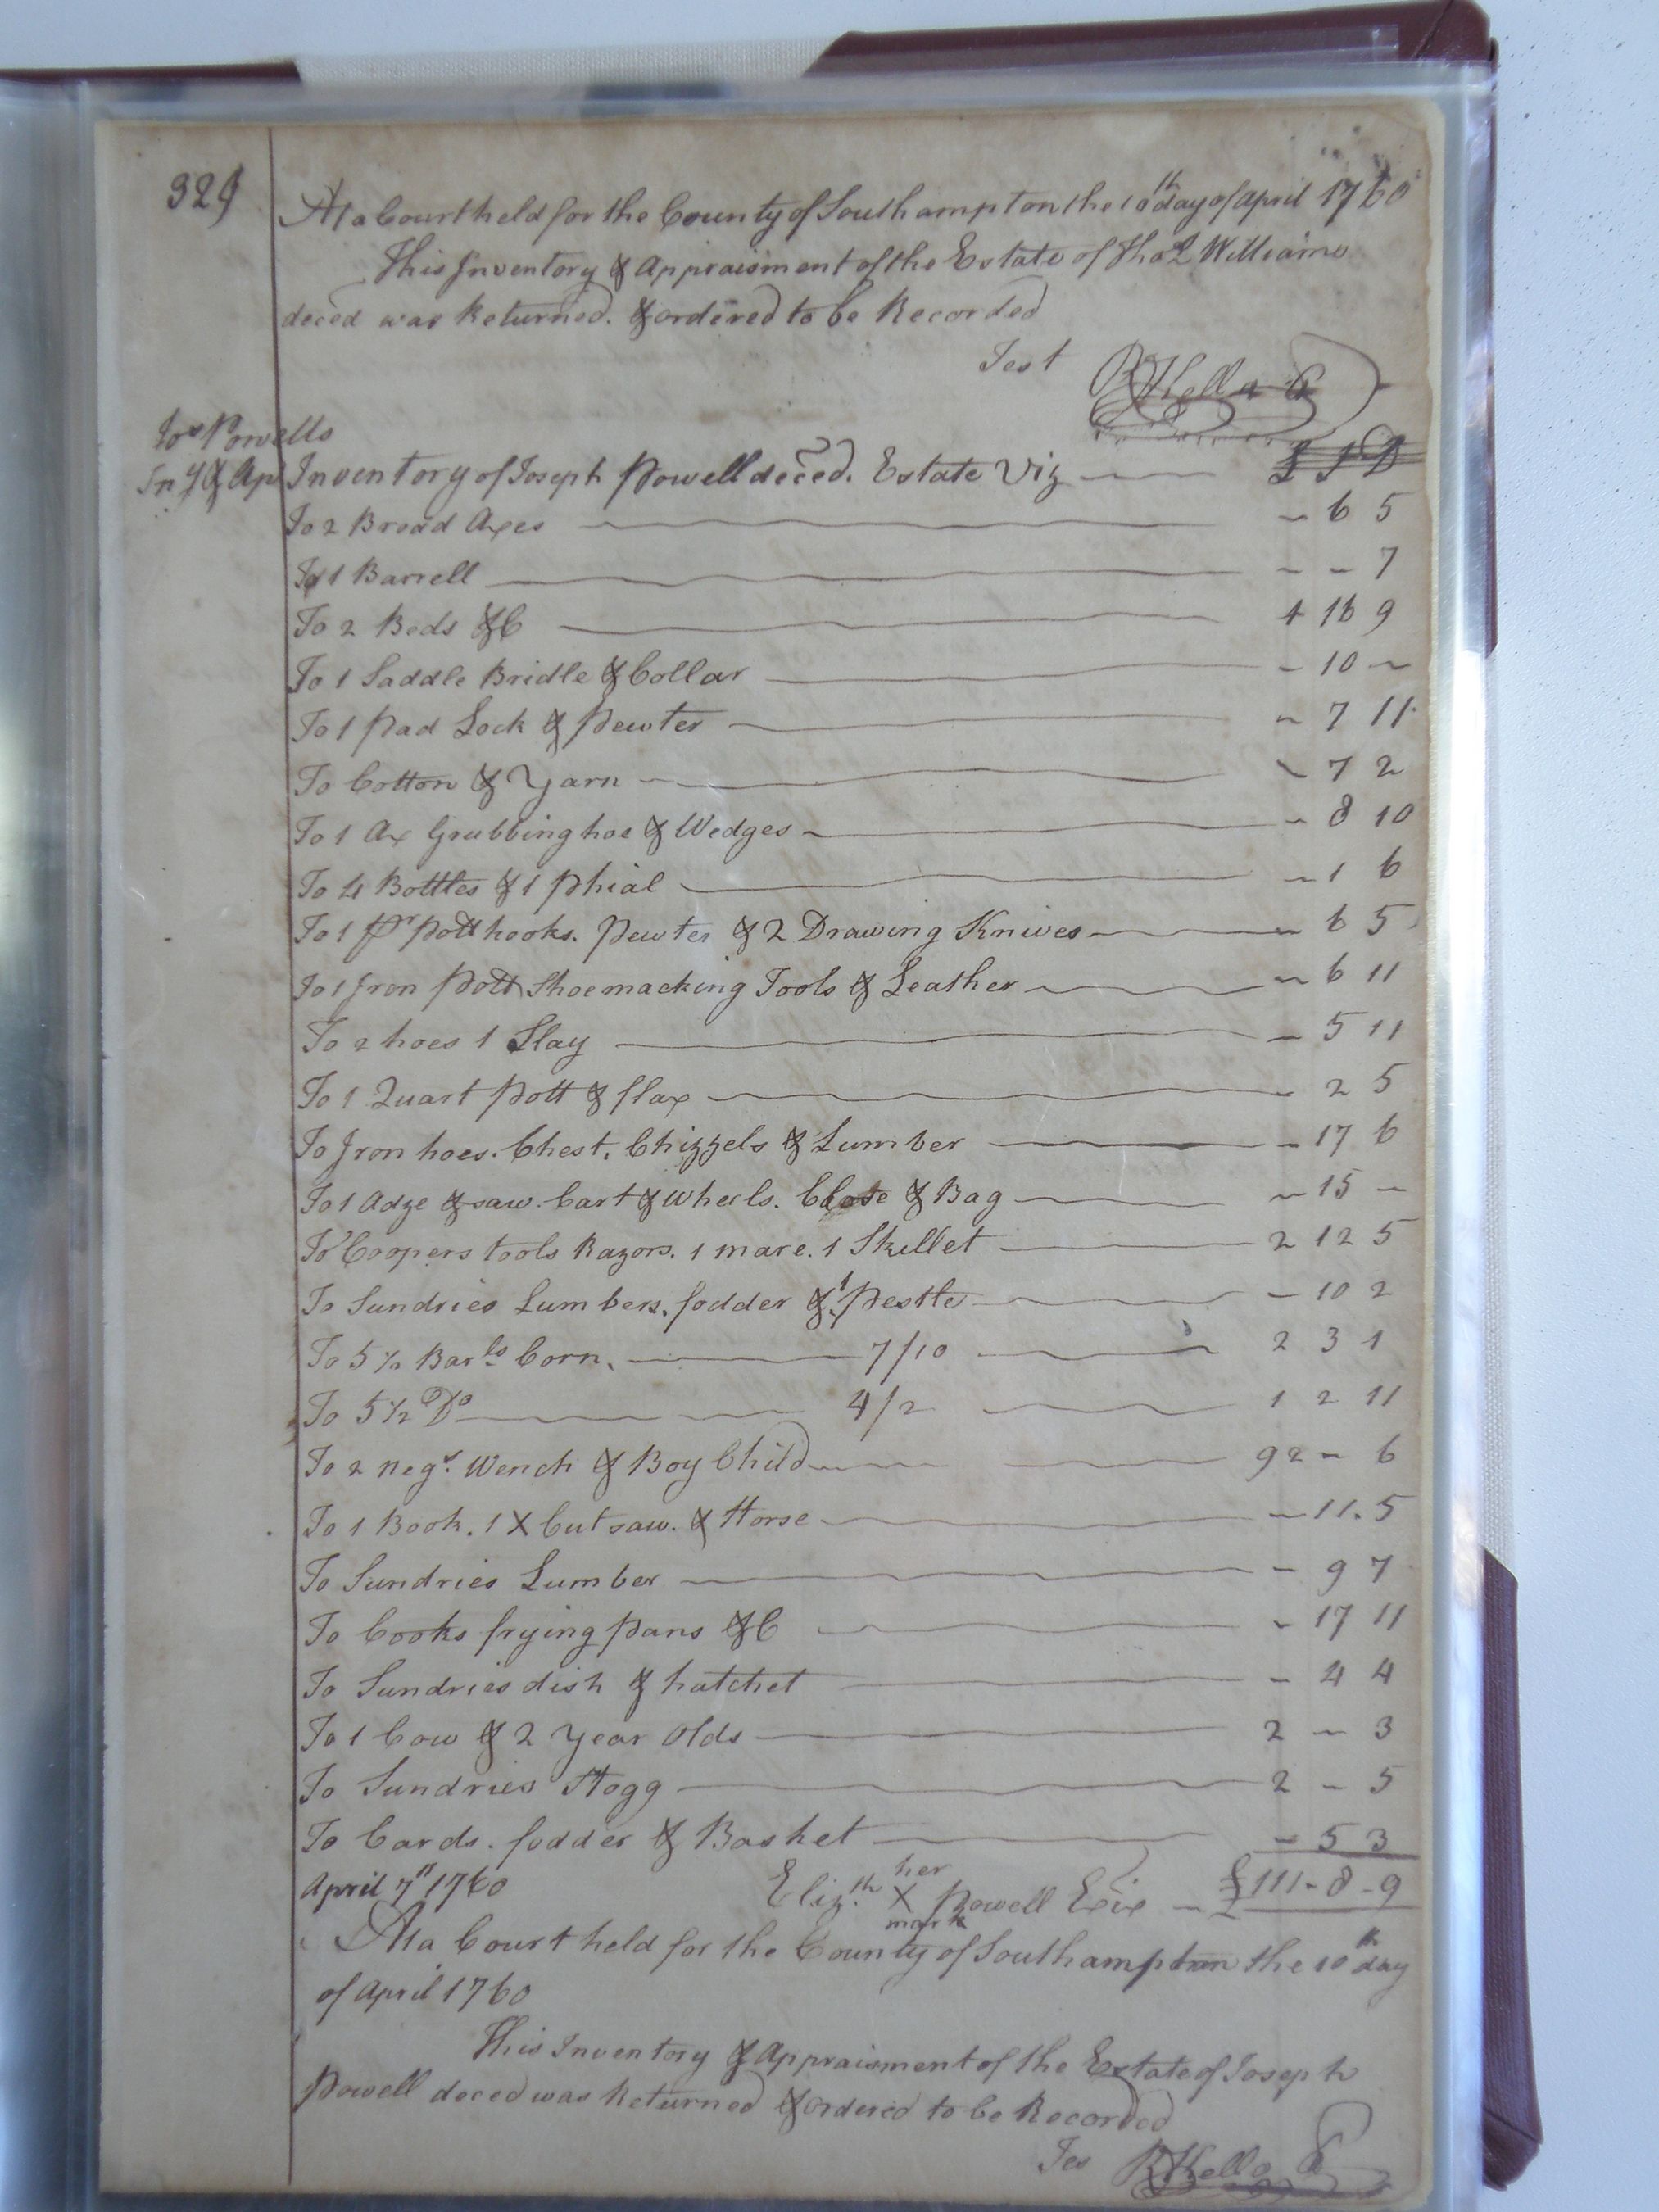 329
At a Court held for the County of Southampton the 10th day of April 1760
This Inventory & Appraisment of the Estate of Thos Williams
deced was Returned. & ordered to be Recorded
Test RKello
Jos Powells
Iny & Ap
Inventory of Joseph Powell deced. Estate Viz £ S D
To 2 Broad Axes - 6 5
To 1 Barrell - - 7
To 2 Beds &C 4 16 9
To 1 Saddle Bridle & Collar - 10 -
To 1 Pad Lock & Pewter - 7 11
To Cotton & Yarn - 7 2
To 1 Ax Grubbing hoe & Wedges - 8 10
To 4 Bottles & 1 Phial - 1 6
To 1 pr Pott hooks. Pewter & 2 Drawing Knives - 6 5
To 1 Iron Pott Shoemacking Tools & Leather - 6 11
To 2 hoes 1 Slay - 5 11
To 1 Quart Pott & flax - 2 5
To Iron hoes. Chest. Chizzels & Lumber - 17 6
To 1 Adze & saw. Cart & Wheels. & Bag - 15 -
To Coopers tools Razors. 1 mare. 1 Skillet 2 12 5
To Sundries Lumbers. fodder & 1 Pestle - 10 2
To 5½ Barls Corn. 7/10 2 3 1
To 5½ Do 4/2 1 2 11
To 2 negs. Wench & Boy Child 92 - 6
To 1 Book. 1 X Cut saw. & Horse - 11. 5
To Sundries Lumber - 9 7
To Cooks frying Pans &C - 17 11
To Sundries dish & hatchet - 4 4
To 1 Cow & 2 Year Olds 2 - 3
To Sundries Hogg 2 - 5
To Cards. fodder & Basket - 5 3
April 7th 1760 Elizth her X mark Powell Exix £111-8-9
At a Court held for the County of Southampton the 10th day
of April 1760
This Inventory & Appraisment of the Estate of Joseph
Powell deced was Returned & ordered to be Recorded
Tes RKello